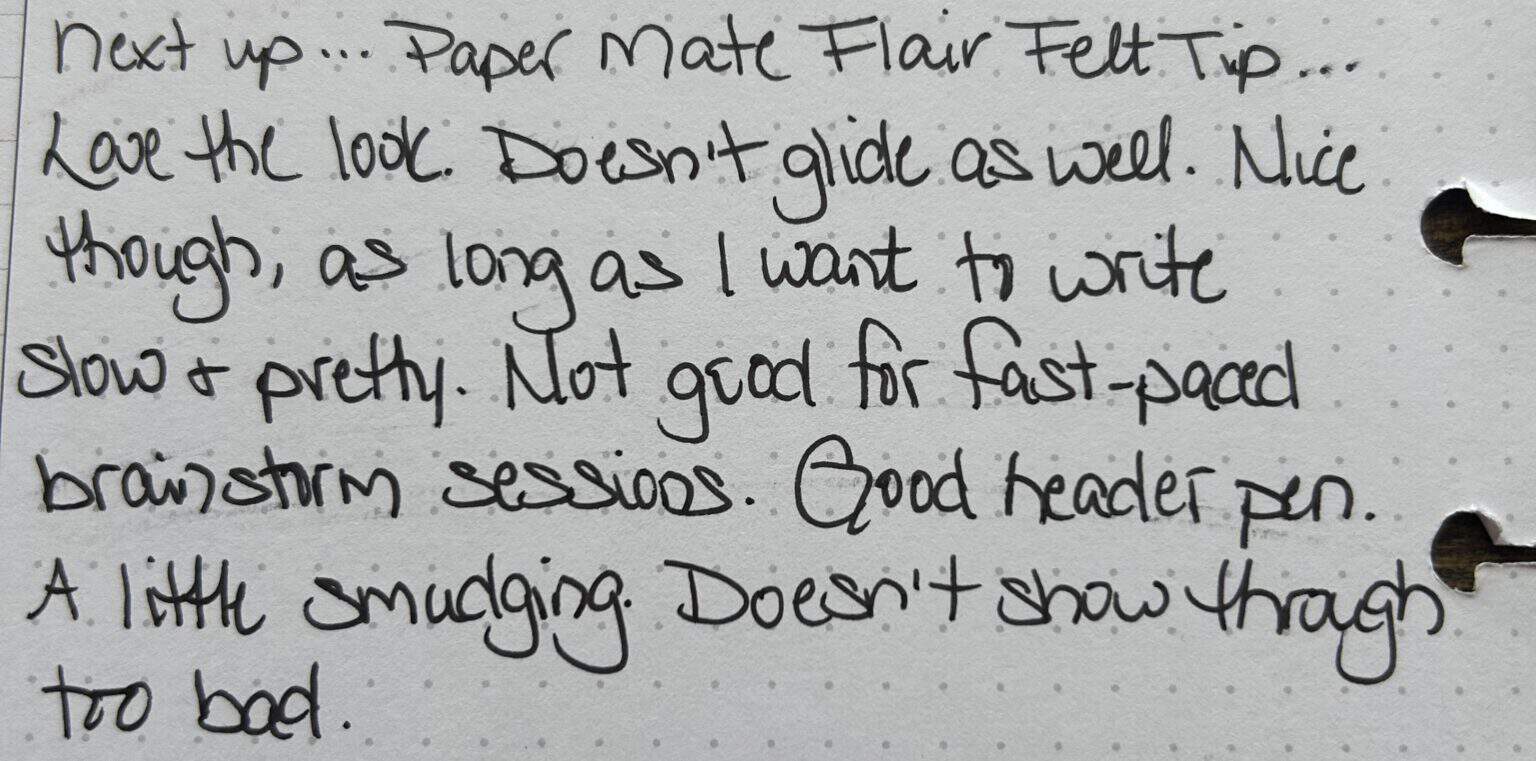 next up... Paper Mate Flair Felt Tip...
Love the look. Doesn't glide as well. Nice
though, as long as I want to write
slow & pretty. Not good for fast-paced
brainstorm sessions. Good header pen.
A little smudging. Doesn't show through
too bad.